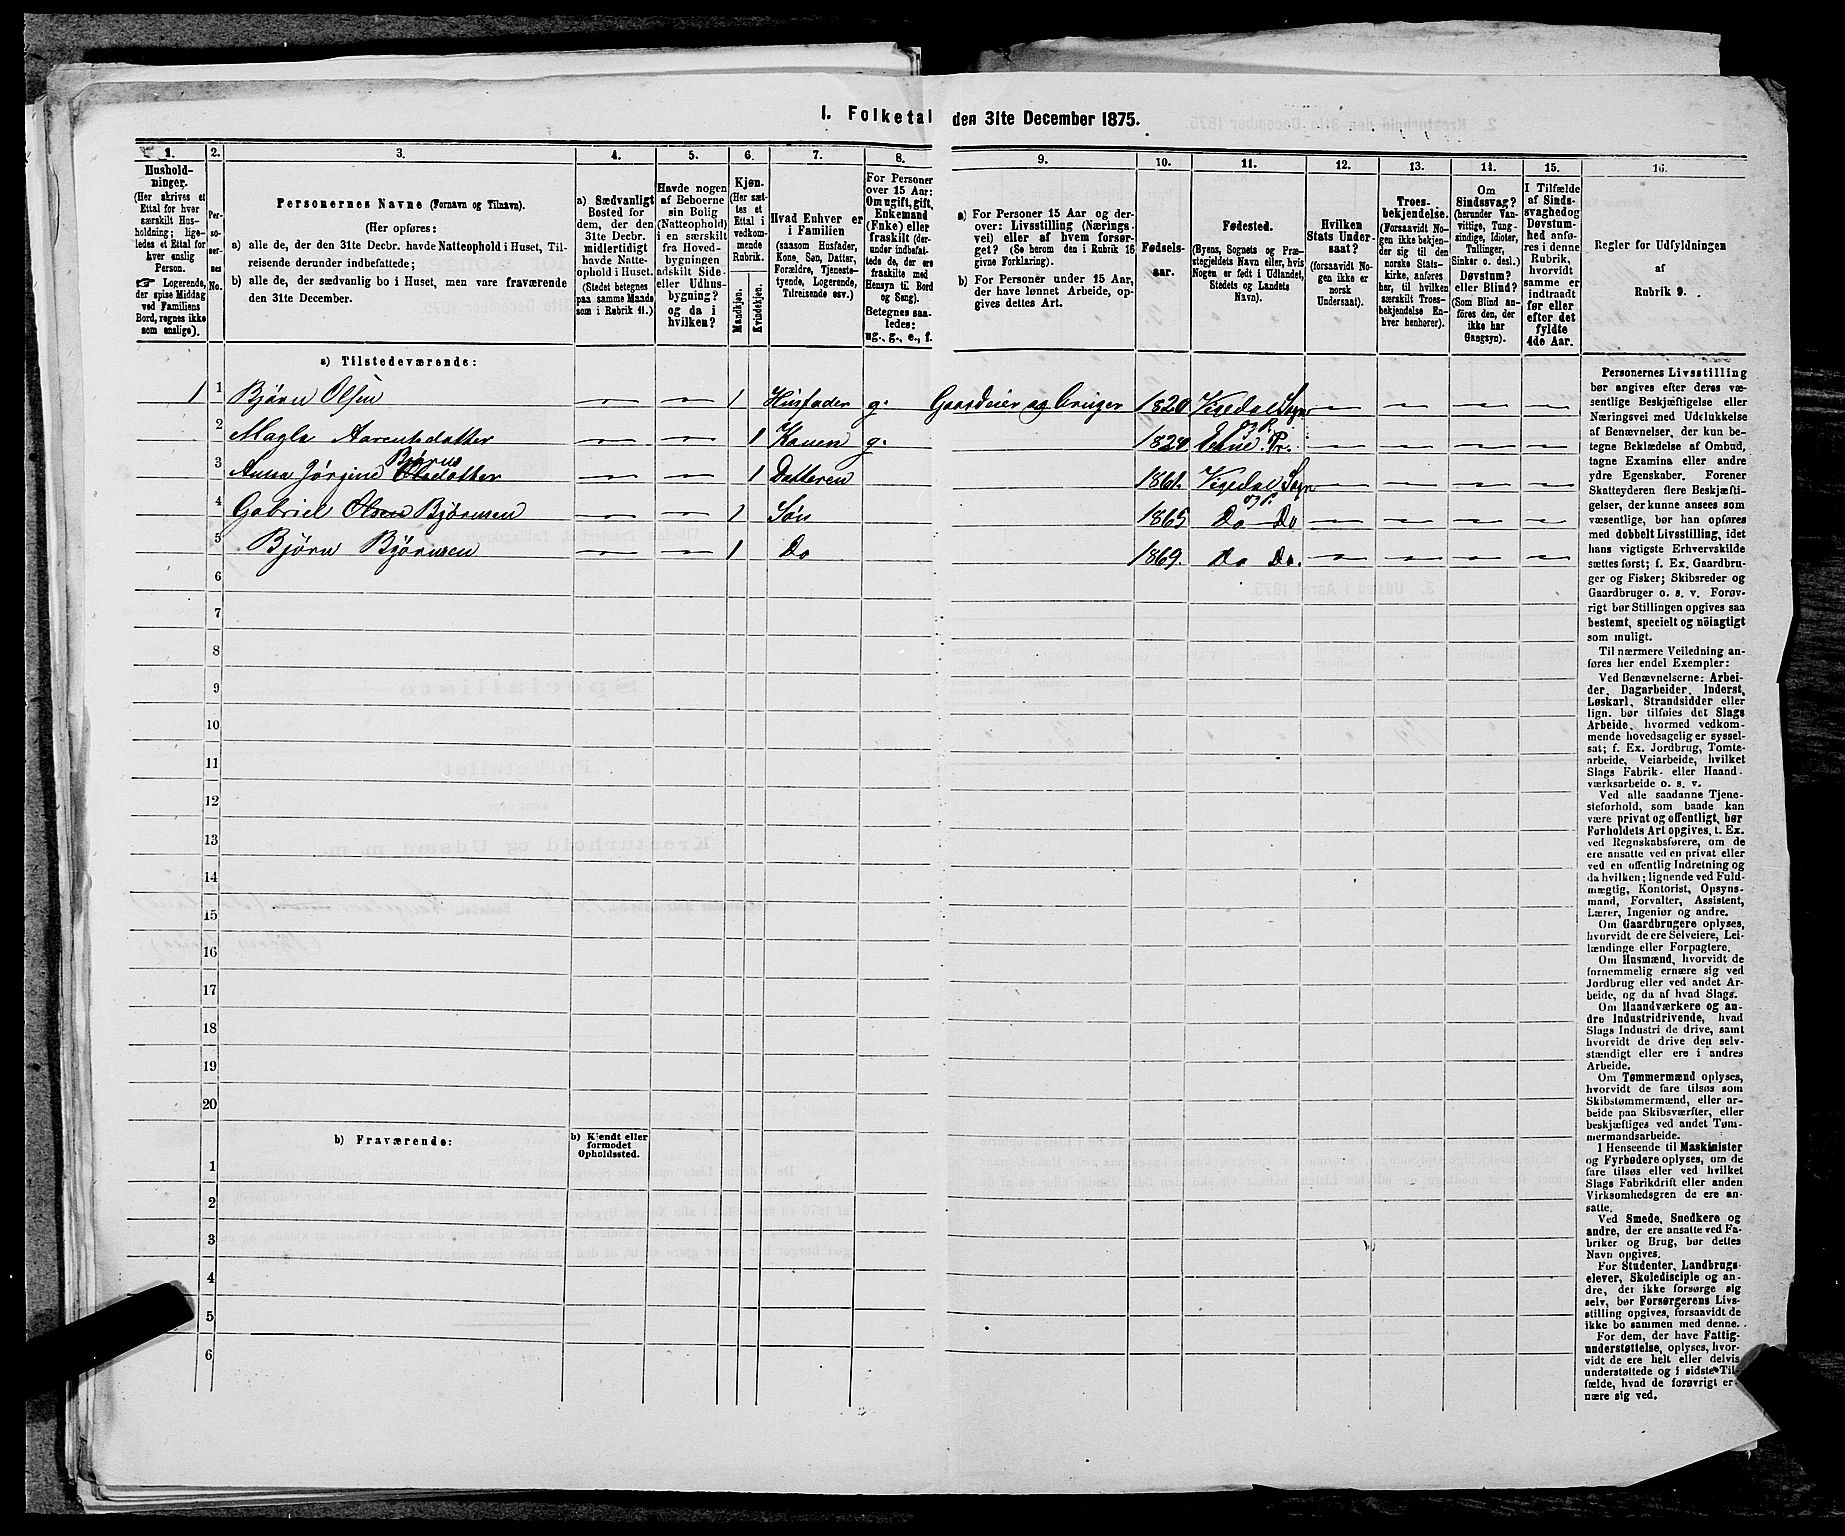 1. Folketal den 31te December 1875.
1. 2. 3. 4. 5. 6. 7. 8. 9. 10. 11. 12. 13. 14. 15. 16.
Hushold-
ninger.
(Her skrives et
Ettal for hver
særskilt Hus-
holdning; lige-
ledes et Ettal for
hver enslig
Person.
☞ Logerende,
der spise Middag
ved Familiens
Bord, regnes ikke
som enslige).
Per-
so-
ner-
nes
No.
Personernes Navne (Fornavn og Tilnavn).
(Her opføres:
a) alle de, der den 31te Decbr. havde Natteophold i Huset, Til-
reisende derunder indbefattede;
b) alle de, der sædvanlig bo i Huset, men vare fraværende
den 31te December.
a) Sædvanligt
Bosted for
dem, der den
31te Decbr.
midlertidigt
havde Natte-
ophold i Huset.
(Stedet betegnes
paa samme Maade
som i Rubrik 11.)
Havde nogen
af Beboerne
sin Bolig
(Natteophold)
i en særskilt
fra Hoved-
bygningen
adskilt Side-
eller Udhus-
bygning?
og da i
hvilken?
Kjøn.
(Her sæt-
tes et
Ettal i
vedkom-
mende
Rubrik.
Mandkjøn.
Kvindekjøn.
Hvad Enhver er
i Familien
(saasom Husfader,
Kone, Søn, Datter,
Forældre, Tjeneste-
tyende, Logerende,
Tilreisende osv.)
For Personer
over 15 Aar:
Om ugift, gift,
Enkemand
(Enke) eller
fraskilt (der-
under indbefat-
tede de, der ere
fraskilte med
Hensyn til Bord
og Seng).
Betegnes saa-
ledes:
ug., g., e., f.
a) For Personer 15 Aar og der-
over: Livsstilling (Nærings-
vei) eller af hvem forsør-
get? (Se herom den i Rubrik 16
givne Forklaring).
b) For Personer under 15 Aar,
der have lønnet Arbeide, op-
gives dettes Art.
Fødsels-
aar.
Fødested.
(Byens, Sognets og Præ-
stegjeldets Navn eller, hvis
Nogen er født i Udlandet,
Stedets og Landets
Navn).
Hvilken
Stats Under-
saat?
(forsaavidt No-
gen ikke er
norsk
Undersaat).
Troes-
bekjendelse.
(Forsaavidt No-
gen ikke bekjen-
der sig til den
norske Stats-
kirke, anføres
her, til hvilken
særskilt Troes-
bekjendelse En-
hver henhører).
Om
Sindssvag?
(herunder Van-
vittige, Tung-
sindige, Idioter,
Tullinger,
Sinker o. desl.)
Døvstum?
eller Blind?
(Som Blind an-
føres den, der
ikke har
Gangsyn).
I Tilfælde
af Sinds-
svaghed og
Døvstum-
hed anfø-
res i denne
Rubrik,
hvorvidt
samme er
indtraadt
før eller
efter det
fyldte
4de Aar.
Regler for Udfyldningen
af
Rubrik 9.
a) Tilstedeværende:
1 1 Bjørn Olsen — — 1 Husfader g. Gaardeier og bruger 1820 Vigedal Sogn og P. — — — —
2 Magla Aarentsdatter — — 1 Konen g. 1824 Etne Pr. — — — —
3 Anna Jørgine Olsdatter Bjørns — — 1 Datteren 1861. Vigedal Sogn og P. — — — —
4 Gabriel Olsen Bjørnsen — — 1 Søn 1865 Do Do — — — —
5 Bjørn Bjørnsen — — 1 Do 1869. Do Do. — — — —
6
7
8
9
10
11
12
13
14
15
16
17
18
19
20
b) Fraværende:
b) Kjendt eller
formodet
Opholdssted.
1
2
3
4
5
6
Personernes Livsstilling
bør angives efter deres væ-
sentlige Beskjæftigelse eller
Næringsvei med Udelukkelse
af Benævnelser, der kun be-
tegne Beklædelse af Ombud,
tagne Examina eller andre
ydre Egenskaber. Forener
Skatteyderen flere Beskjæfti-
gelser, der kunne ansees som
væsentlige, bør han opføres
med dobbelt Livsstilling, idet
hans vigtigste Erhvervskilde
sættes først; f. Ex. Gaardbru-
ger og Fisker; Skibsreder og
Gaardbruger o. s. v. Forøv-
rigt bør Stillingen opgives saa
bestemt, specielt og nöiagtigt
som muligt.
Til nærmere Veiledning an-
føres her endel Exempler:
Ved Benævnelserne: Arbei-
der, Dagarbeider, Inderst,
Løskarl, Strandsidder eller
lign. bør tilføies det Slags
Arbeide, hvormed vedkom-
mende hovedsagelig er syssel-
sat; f. Ex. Jordbrug, Tomte-
arbeide, Veiarbeide, hvilket
Slags Fabrik- eller Haand-
værksarbeide o. s. v.
Ved alle saadanne Tjene-
steforhold, som baade kan
være privat og offentligt, bør
Forholdets Art opgives, t. Ex.
ved Regnskabsførere, om de
ere ansatte ved en privat eller
ved en offentlig Indretning og
da hvilken; lignende ved Fuld-
mægtig, Kontorist, Opsyns-
mand, Forvalter, Assistent,
Lærer, Ingeniør og andre.
Om Gaardbrugere oplyses,
hvorvidt de ere Selveiere, Lei-
lændinge eller Forpagtere.
Om Husmænd, hvorvidt de
fornemmelig ernære sig ved
Jordbrug eller ved andet Ar-
beide, og da af hvad Slags.
Om Haandværkere og an-
dre Industridrivende, hvad
Slags Industri de drive, samt
hvorvidt de drive den selv-
stændigt eller ere i andres
Arbeide.
Om Tømmermænd oplyses,
hvorvidt de fare tilsøs som
Skibstømmermænd, eller ar-
beide paa Skibsværfter, eller
beskjæftiges ved andet Tøm-
mermandsarbeide.
I Henseende til Maskinister
og Fyrbødere oplyses, om de
fare tilsøs eller ved hvilket
Slags Fabrikdrift eller anden
Virksomhedsgren de ere an-
satte.
Ved Smede, Snedkere og
andre, der ere ansatte ved Fa-
briker og Brug, bør dettes
Navn opgives.
For Studenter, Landbrugs-
elever, Skoledisciple og an-
dre, der ikke forsørge sig
selv, bør Forsørgerens Livs-
stilling opgives, forsaavidt de
ikke bo sammen med denne.
For dem, der have Fattig-
understøttelse, oplyses, hvor-
vidt de ere helt eller delvis
understøttede og i sidste Til-
fælde, hvad de forøvrigt er-
nære sig ved.